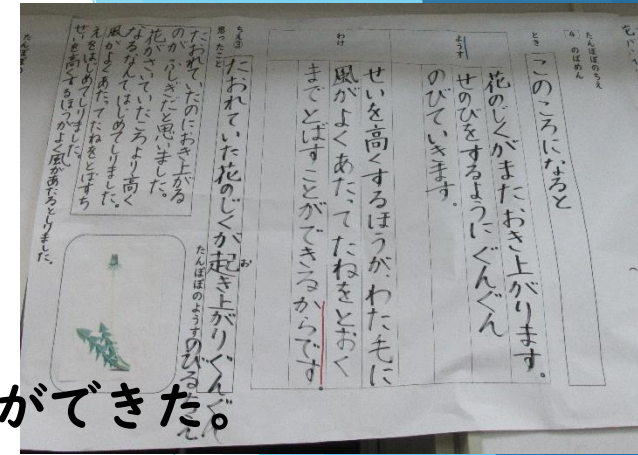 たんぽぽのちえ
④ のばめん
とき
このころになると
ようす
花のじくがまたおき上がります。
せのびをするようにぐんぐん
のびていきます。
わけ
せいを高くするほうが、わた毛に
風がよくあたってたねをとおく
までとばすことができるからです。
ちえ③
たおれていた花のじくが起き上がりぐんぐん
お
のびるちえ
思ったこと
たおれていたのにおき上がる
のがふしぎだと思いました。
花がさいていたころより高く
なるなんてはじめてしりました。
風がよくあたってたねをとばすち
えをはじめてしりました。
せいを高くするほうがよく風があたるとしりました。
たんぽぽのようす
たんぽぽの
ができた。